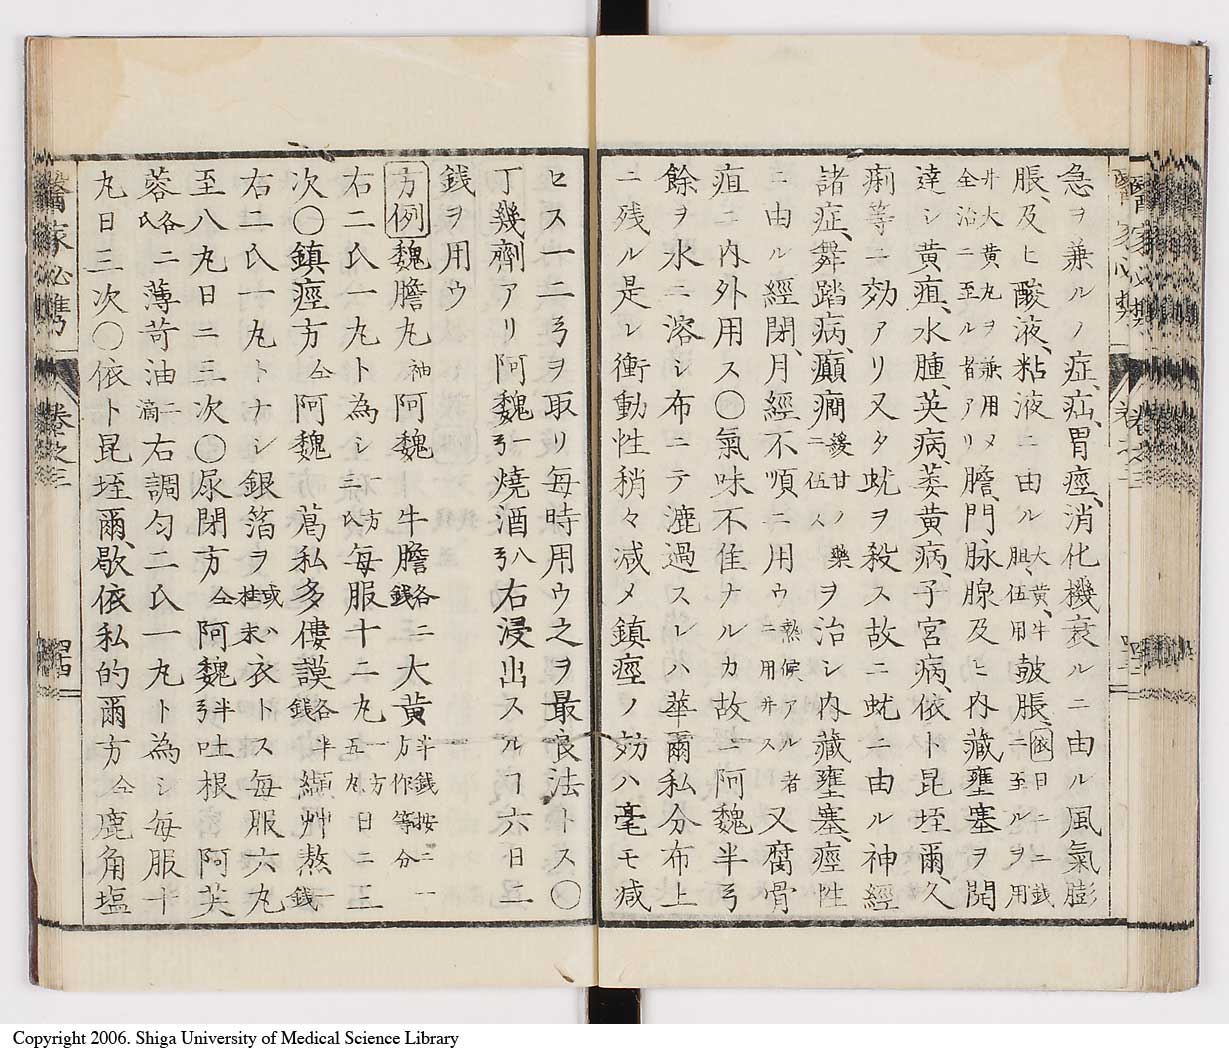 急ヲ兼ルノ症、疝、胃痙、消化機衰ルニ由ル風氣膨
脹、及ヒ酸液、粘液ニ由ル大黄、牛胆、伍用皷脹、依日ニ二戔ニ至ルヲ用
井大黄丸ヲ兼用メ全治ニ至ル者アリ膽、門、脉腺及ヒ内藏壅塞ヲ開
達シ黄疸、水腫、英病、萎黄病、子宮病、依ト昆垤爾、久
痢等ニ効アリ又タ蚘ヲ殺ス故ニ蚘ニ由ル神經
諸症、舞蹈病、癲癇纈甘ノ藥ニ伍スヲ治シ内藏壅塞、痙性
ニ由ル經閉、月經不順ニ用ウ熱候アル者ニ用井ス又腐骨
疽ニ内外用ス〇氣味不佳ナルカ故ニ阿魏半弓
餘ヲ水ニ溶シ布ニテ漉過スレハ華爾私分布上
ニ残ル是レ衝動性稍々减メ鎮痙ノ効ハ毫モ减
セス一二弓ヲ取リ毎時用ウ之ヲ最良法トス〇
丁幾劑アリ阿魏一弓燒酒八弓右浸出スルヿ六日二
銭ヲ用ウ
方例魏膽丸袖阿魏 牛膽各二銭大黄半銭按二一方作等分
右二氏一丸ト為シ一方三氏毎服十二丸一方五丸日二三
次〇鎮痙方仝阿魏 蔦私多僂謨各半銭纈艸熬一銭
右二氏一丸トナシ銀箔ヲ或ハ桂末衣トス毎服六丸
至八丸日二三次〇尿閉方仝阿魏半弓吐根 阿芙
蓉各二氏薄苛油二滴右調匀二氏一丸ト為シ毎服十
丸日三次〇依ト昆垤爾、歇依私的爾方仝鹿角塩
醫家必携 卷之三